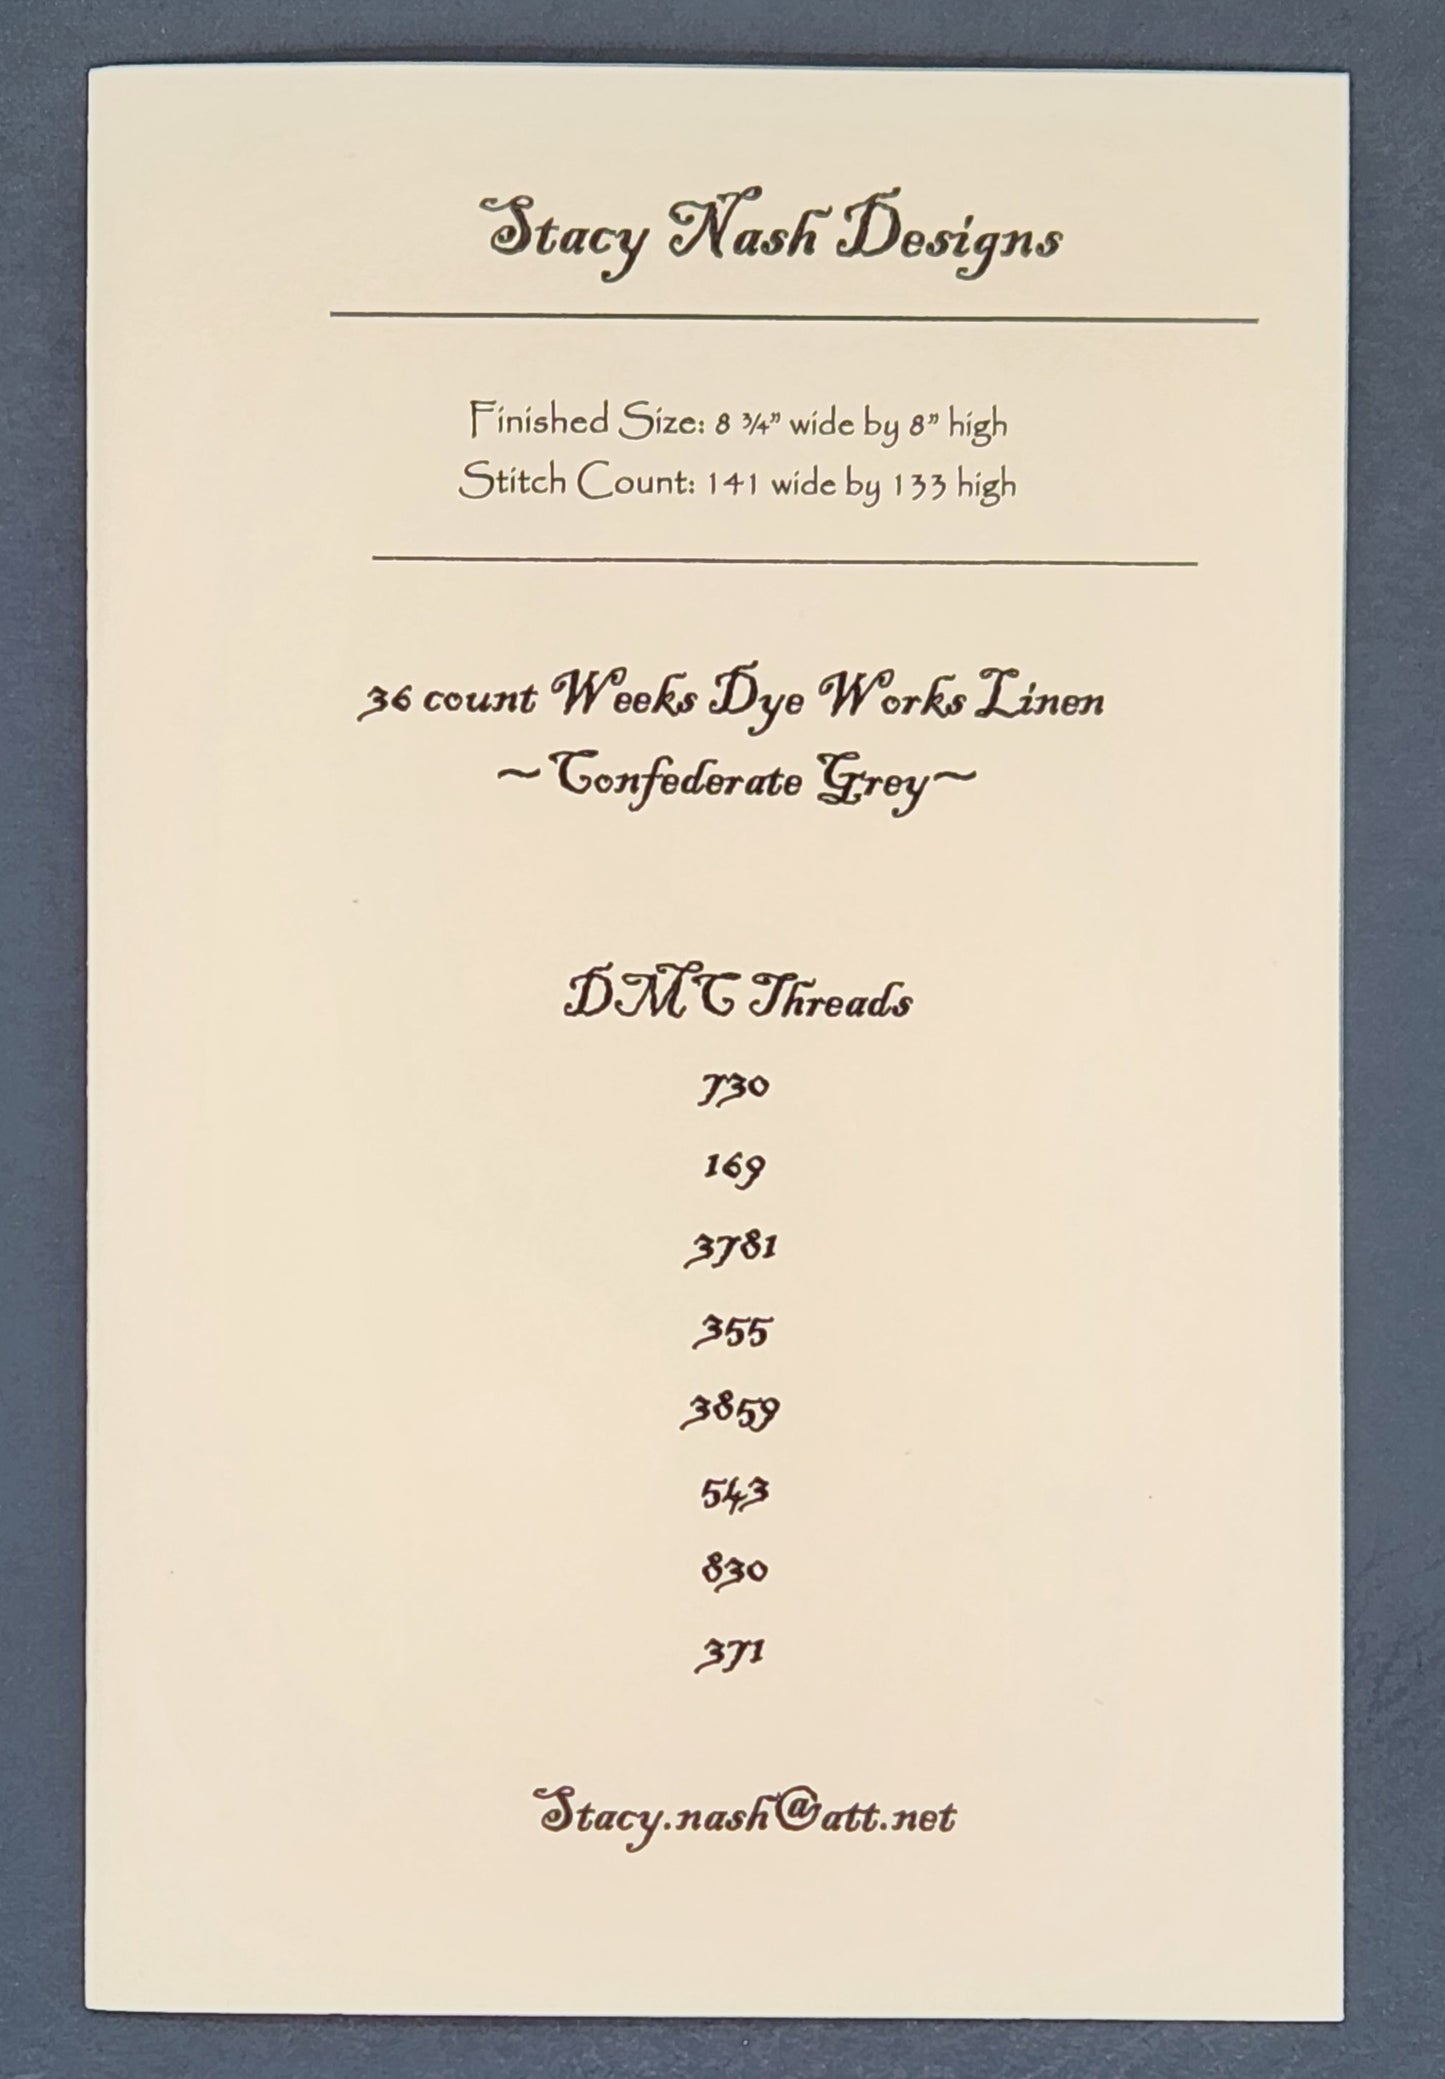 Stacy Nash Designs
Finished Size: 8 ¾” wide by 8” high
Stitch Count: 141 wide by 133 high
36 count Weeks Dye Works Linen
~Confederate Grey~
DMC Threads
730
169
3781
355
3859
543
830
371
Stacy.nash@att.net